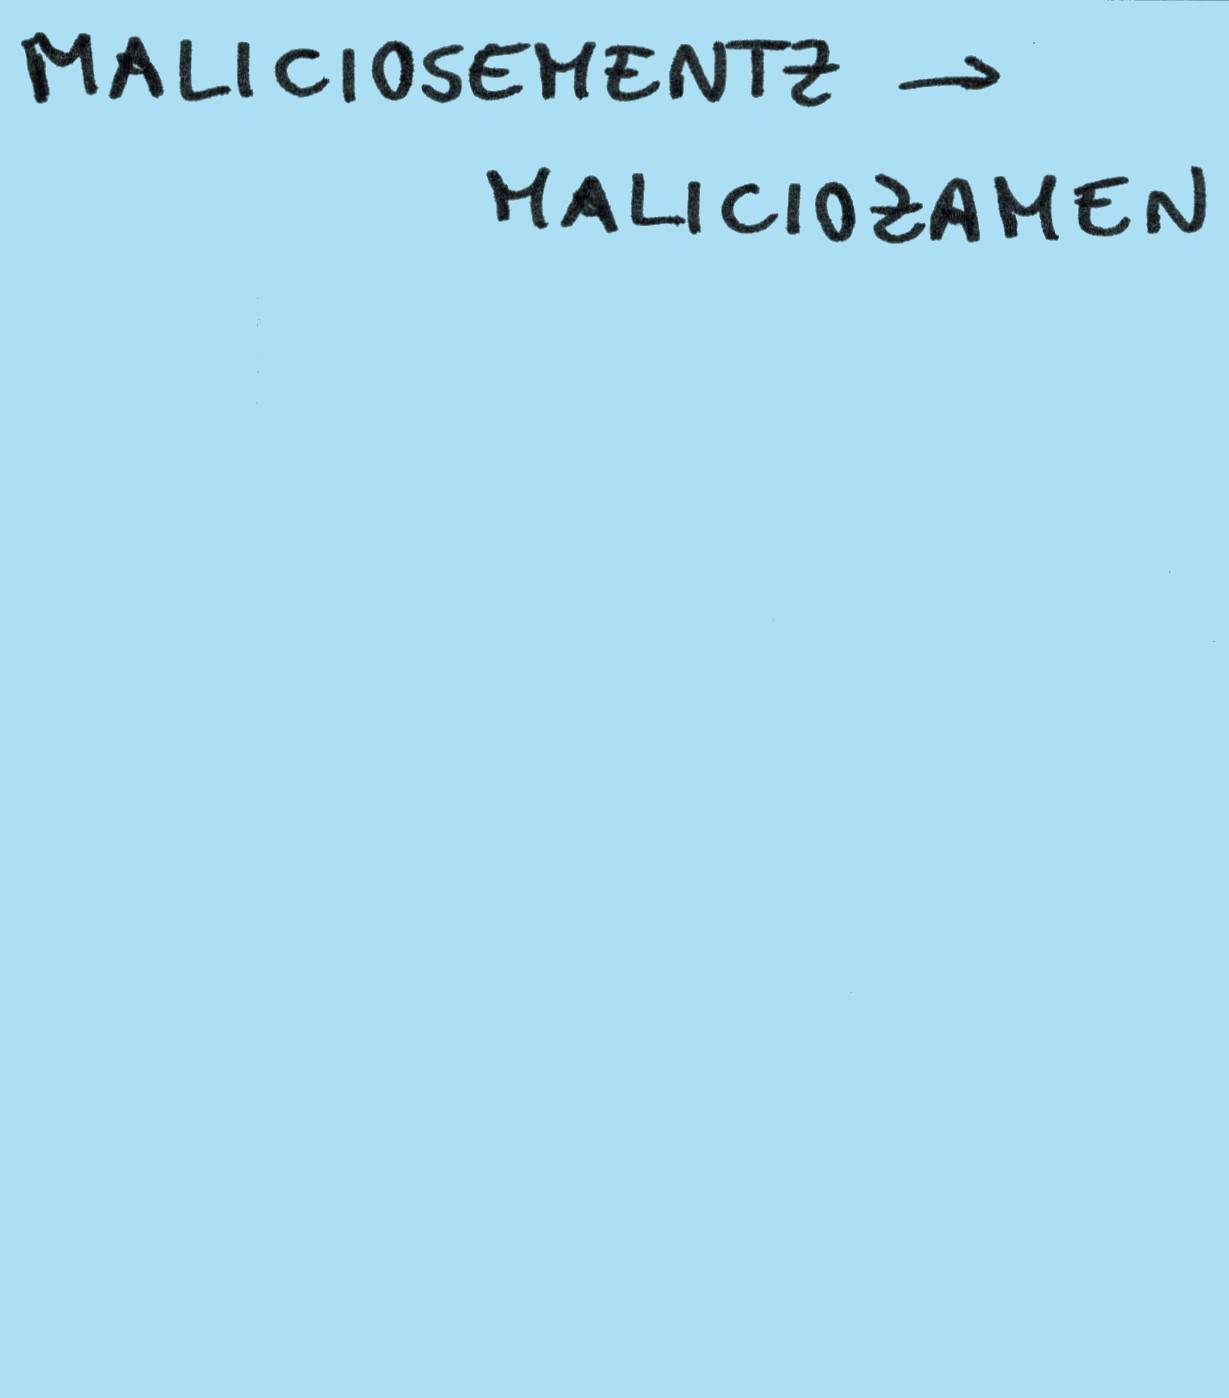 MALICIOSEMENTZ →
MALICIOZAMEN